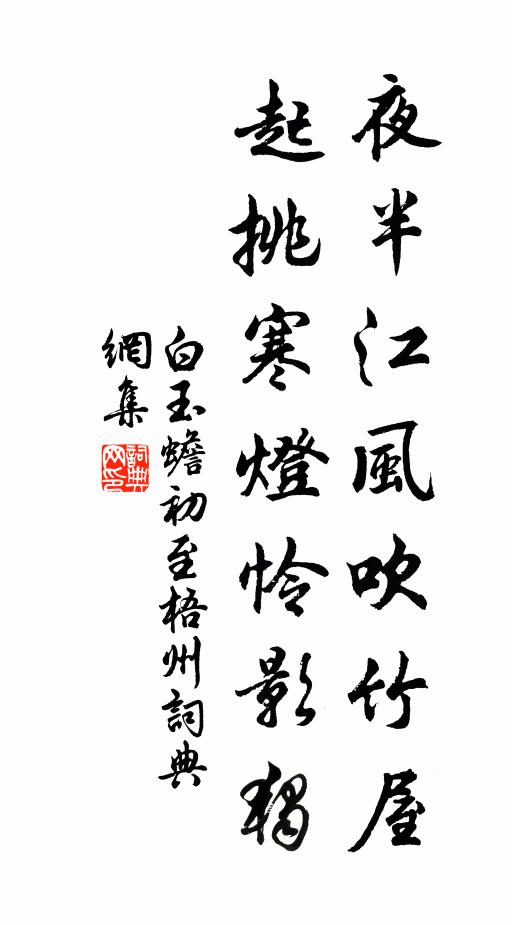 夜半江風吹竹屋
起挑寒燈怜影獨
白玉蟾初至梧州詞典
網集
詞典網印